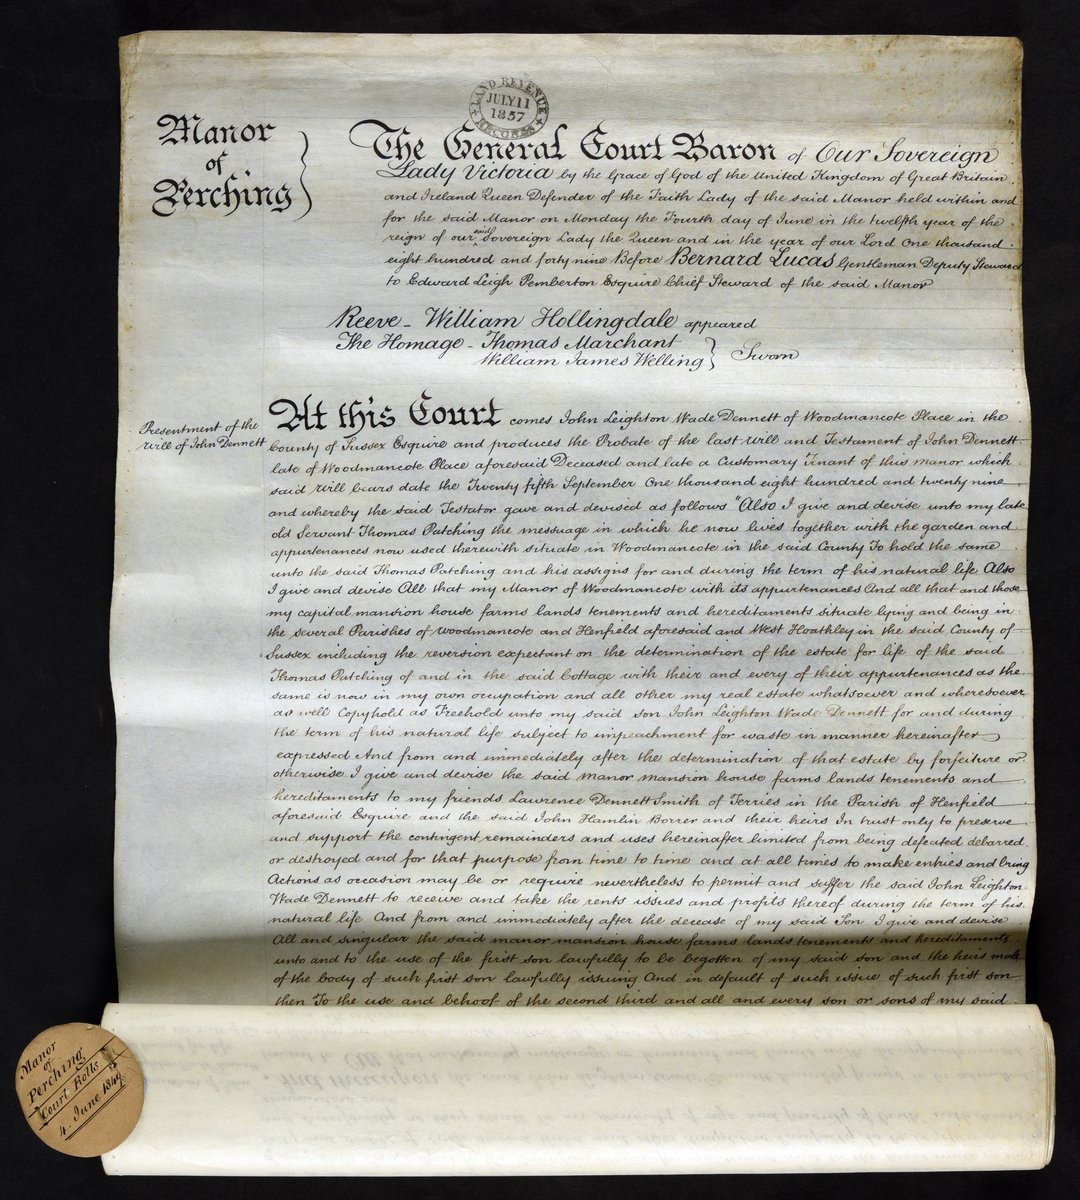 LAND REVENUE
JULY.11
1857
RECORDS
Manor
of
Perching
The General Court Baron of Our Sovereign
Lady Victoria by the Grace of God of the United Kingdom of Great Britain
and Ireland Queen Defender of the Faith Lady of the said Manor held within and
for the said Manor on Monday the Fourth day of June in the twelfth year of the
reign of our said Sovereign Lady the Queen and in the year of our Lord One thousand
eight hundred and forty nine Before Bernard Lucas Gentleman Deputy Steward
to Edward Leigh Pemberton Esquire Chief Steward of the said Manor
Reeve - William Hollingdale appeared
The Homage - Thomas Marchant
William James Welling } Sworn
Presentment of the
Will of John Dennett
At this Court comes John Leighton Wade Dennett of Woodmancote Place in the
County of Sussex Esquire and produces the Probate of the last Will and Testament of John Dennett
late of Woodmancote Place aforesaid Deceased and late a Customary Tenant of this manor which
said Will bears date the Twenty fifth September One thousand eight hundred and twenty nine
and whereby the said Testator gave and devised as follows "Also I give and devise unto my late
old Servant Thomas Patching the message in which he now lives together with the garden and
appurtenances now used therewith situate in Woodmancote in the said County To hold the same
unto the said Thomas Patching and his assigns for and during the term of his natural life Also
I give and devise All that my Manor of Woodmancote with its appurtenances And all that and those
my capital mansion house farms lands tenements and hereditaments situate lying and being in
the several Parishes of Woodmancote and Henfield aforesaid and West Hoathley in the said County of
Sussex including the reversion expectant on the determination of the estate for life of the said
Thomas Patching of and in the said Cottage with their and every of their appurtenances as the
same is now in my own occupation and all other my real estate whatsoever and wheresoever
as well Copyhold as Freehold unto my said son John Leighton Wade Dennett for and during
the term of his natural life subject to impeachment for waste in manner hereinafter
expressed And from and immediately after the determination of that estate by forfeiture or
otherwise I give and devise the said manor mansion house farms lands tenements and
hereditaments to my friends Lawrence Dennett Smith of Terries in the Parish of Henfield
aforesaid Esquire and the said John Hamlin Borrer and their heirs In trust only to preserve
and support the contingent remainders and uses hereinafter limited from being defeated debarred
or destroyed and for that purpose from time to time and at all times to make entries and bring
Actions as occasion may be or require nevertheless to permit and suffer the said John Leighton
Wade Dennett to receive and take the rents issues and profits thereof during the term of his
natural life And from and immediately after the decease of my said Son I give and devise
All and singular the said manor mansion house farms lands tenements and hereditaments
unto and to the use of the first son lawfully to be begotten of my said son and the heirs male
of the body of such first son lawfully issuing And in default of such issue of such first son
then To the use and behoof of the second third and all and every son or sons of my said
Manor
of
Perching
Court Rolls
4. June 1849